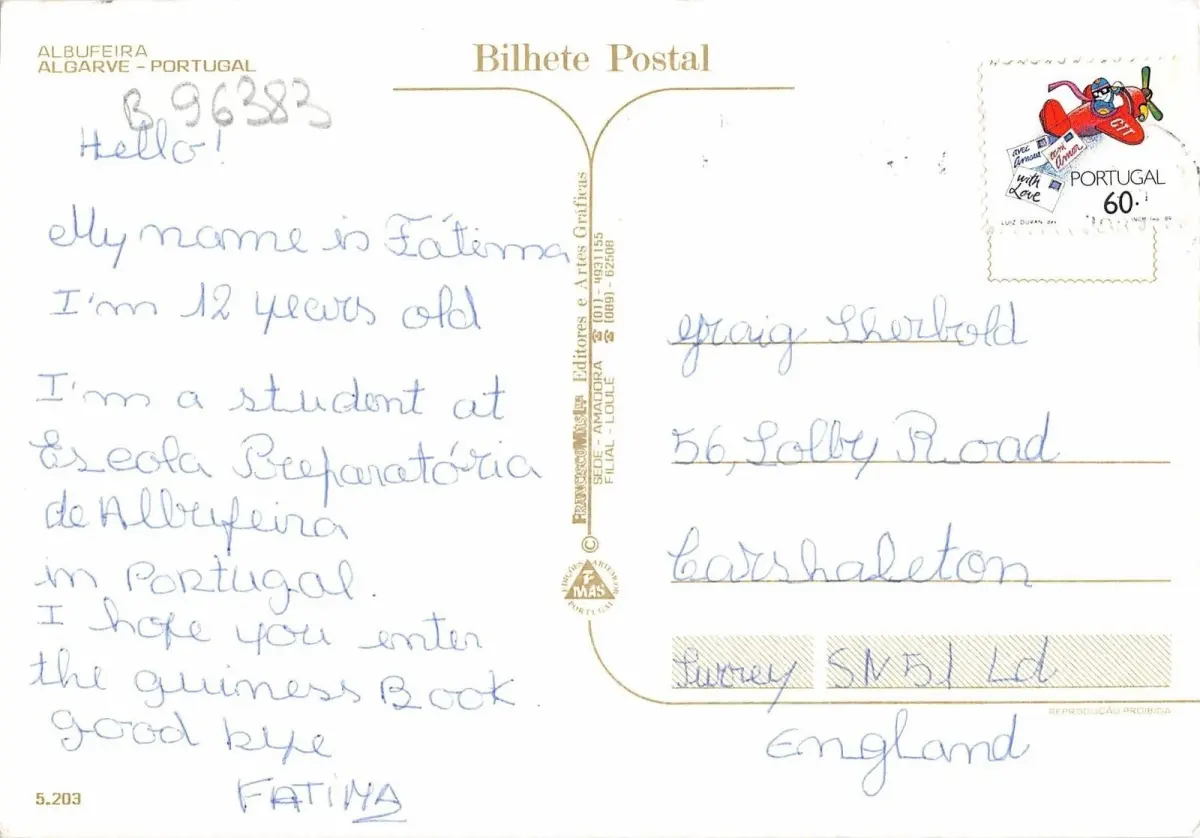 ALBUFEIRA
ALGARVE – PORTUGAL
B 96383
Bilhete Postal
Hello!
My name is Fátima
I'm 12 years old
I'm a student at
Escola Preparatória
de Albufeira
in Portugal.
I hope you enter
the guiness Book.
good bye
FATIMA
5.203
FRANCISCO MAS, Lda Editores e Artes Gráficas
SEDE - AMADORA ☎ (01) - 4931155
FILIAL - LOULÉ ☎ (089) - 62508
©
EDIÇÕES ARTEMPOR
F
MAS
PORTUGAL
CTT
avec
Amour
com
Amor
with
Love
PORTUGAL
60.
LUIZ DURAN 
INCM 89
Graig Sherbold
56, Solby Road
Carshaleton
Surrey SN51 Ld
England
REPRODUÇÃO PROIBIDA